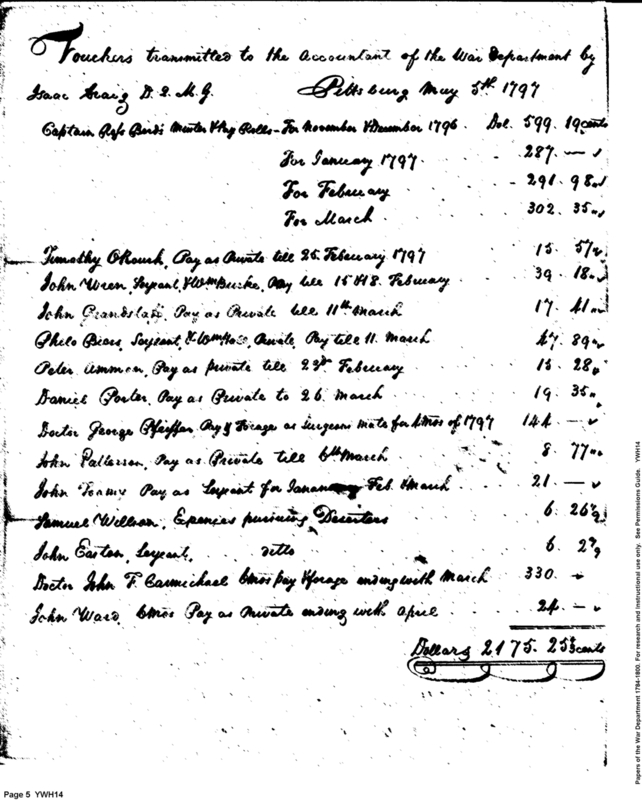 Vouchers transmitted to the Accountant of the War Department by
Isaac Craig D. Q. M. G. Pittsburg May 5th 1797
Captain Bird's Muster & Pay Rolls - For November & December 1796. Dol. 599. 19 cents
For January 1797 . 287. — "
For February - 291. 98 "
For March . 302. 35 "
Timothy ORourk, Pay as Private till 25 February 1797 15. 51
John Wren, Serjeant, & Wm Burke, Pay till 15 & 18. February . 39. 18 "
John Grandstaff, Pay as Private till 11th March 17. 41 "
Philo Bears, Serjeant, & Wm Private, Pay till 11. March 47. 89 "
Peter Ammon, Pay as private till 22d February 15. 28 "
Daniel Porter, Pay as Private to 26. March 19. 35 "
Doctor George Pfeiffer Pay & Forage as Surgeons mate for 4 Mos of 1797 144. — "
John Patterson, Pay as Private till 6th March 8. 77 "
John Pay as Serjeant for January Feb. & March 21. — "
Samuel Wellson, Expences pursuing Deserters 6. 26
John Easton, Serjeant, ditto 6. 2
Doctor John F. Carmichael 6 mos pay & forage ending with March 330. "
John Ward, 6 mos Pay as Private ending with April 24. — "
Dollars 2175. 25 cents
Page 5 YWH14
Papers of the War Department 1784-1800. For research and instructional use only. See Permissions Guide. YWH14